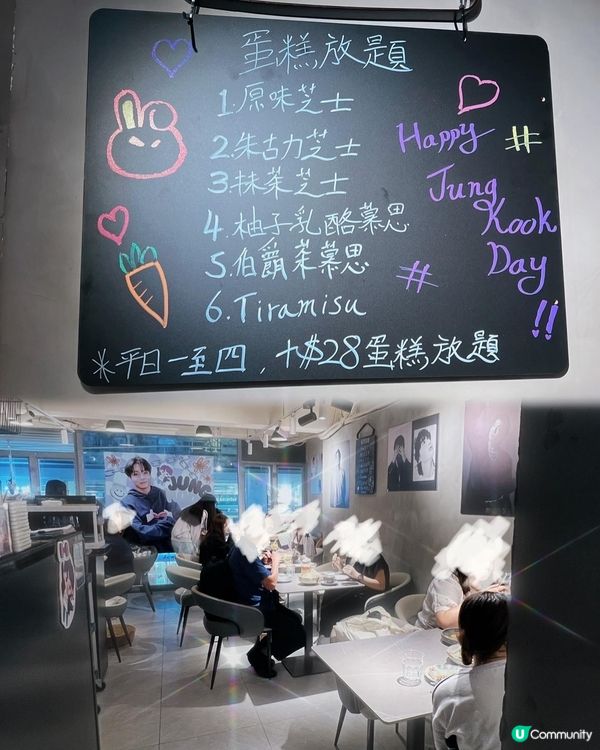 蛋糕放題
1.原味芝士
2.朱古力芝士
3.抹茶芝士
4.柚子乳酪慕思
5.伯爵茶慕思
6.Tiramisu
＊平日一至四，+$28蛋糕放題
Happy #
Jung
Kook
Day
#
!!
JUNG
U Community